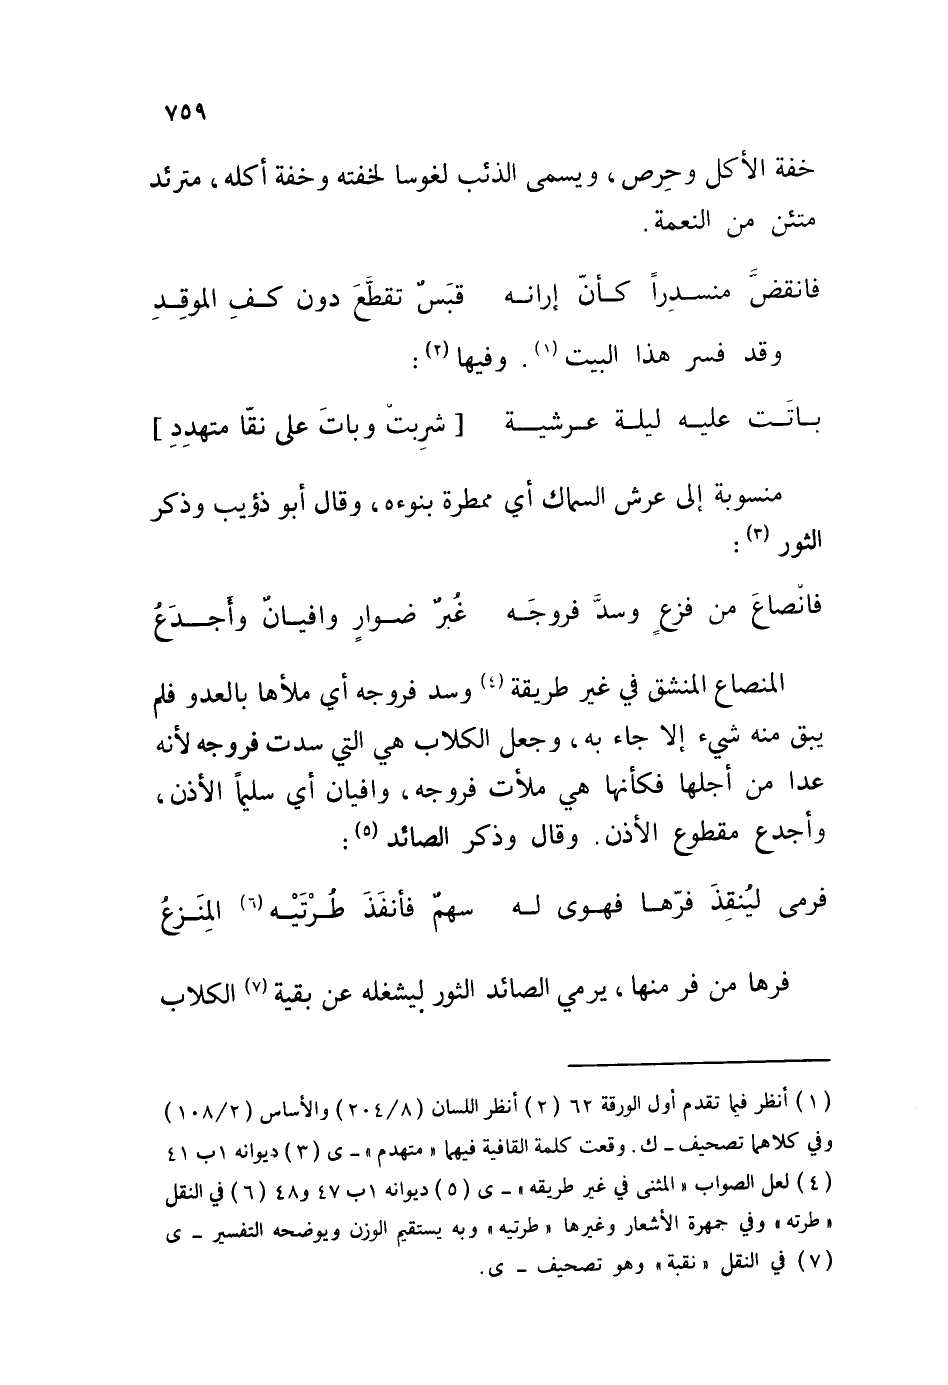 ٧٥٩
خفة الأكل وحِرص، ويسمى الذئب لغوسا لخفته وخفة أكله، مترئد
متئن من النعمة.
فانقضَّ منسـدِراً كـأنّ إرانـه قبَسٌ تقطَّعَ دون كـفِ الموقِـدِ
وقد فسر هذا البيت (١). وفيها (٢):
بـاتَـت عليـه ليلـة عـرشيـة [ شرِبتْ وباتَ على نقّا متهددِ ]
منسوبة إلى عرش السماك أي ممطرة بنوءه، وقال أبو ذؤيب وذكر
الثور (٣):
فانْصاعَ من فزعٍ وسدَّ فروجَـه غُبرٌ ضـوارٍ وافيـانٌ وأَجـدَعُ
المنصاع المنشق في غير طريقة (٤) وسد فروجه أي ملأها بالعدو فلم
يبق منه شيء إلا جاء به، وجعل الكلاب هي التي سدت فروجه لأنه
عدا من أجلها فكأنها هي ملأت فروجه، وافيان أي سليماً الأذن،
وأجدع مقطوع الأذن. وقال وذكر الصائد (٥):
فرمى ليُنقِذَ فرّهـا فهـوى لـه سهمٌ فأنفَذَ طُـرْتَيْـه (٦) المِنَـزعُ
فرها من فر منها، يرمي الصائد الثور ليشغله عن بقية (٧) الكلاب
(١) أنظر فيما تقدم أول الورقة ٦٢ (٢) أنظر اللسان (٢٠٤/٨) والأساس (١٠٨/٢)
وفي كلاهما تصحيف ـ ك. وقعت كلمة القافية فيهما « متهدم » ـ ى (٣) ديوانه ١ب ٤١
(٤) لعل الصواب « المثنى في غير طريقه » ـ ى (٥) ديوانه ١ب ٤٧ و٤٨ (٦) في النقل
« طرته » وفي جمهرة الأشعار وغيرها « طرتيه » وبه يستقيم الوزن ويوضحه التفسير ـ ى
(٧) في النقل « نقبة » وهو تصحيف ـ ى.